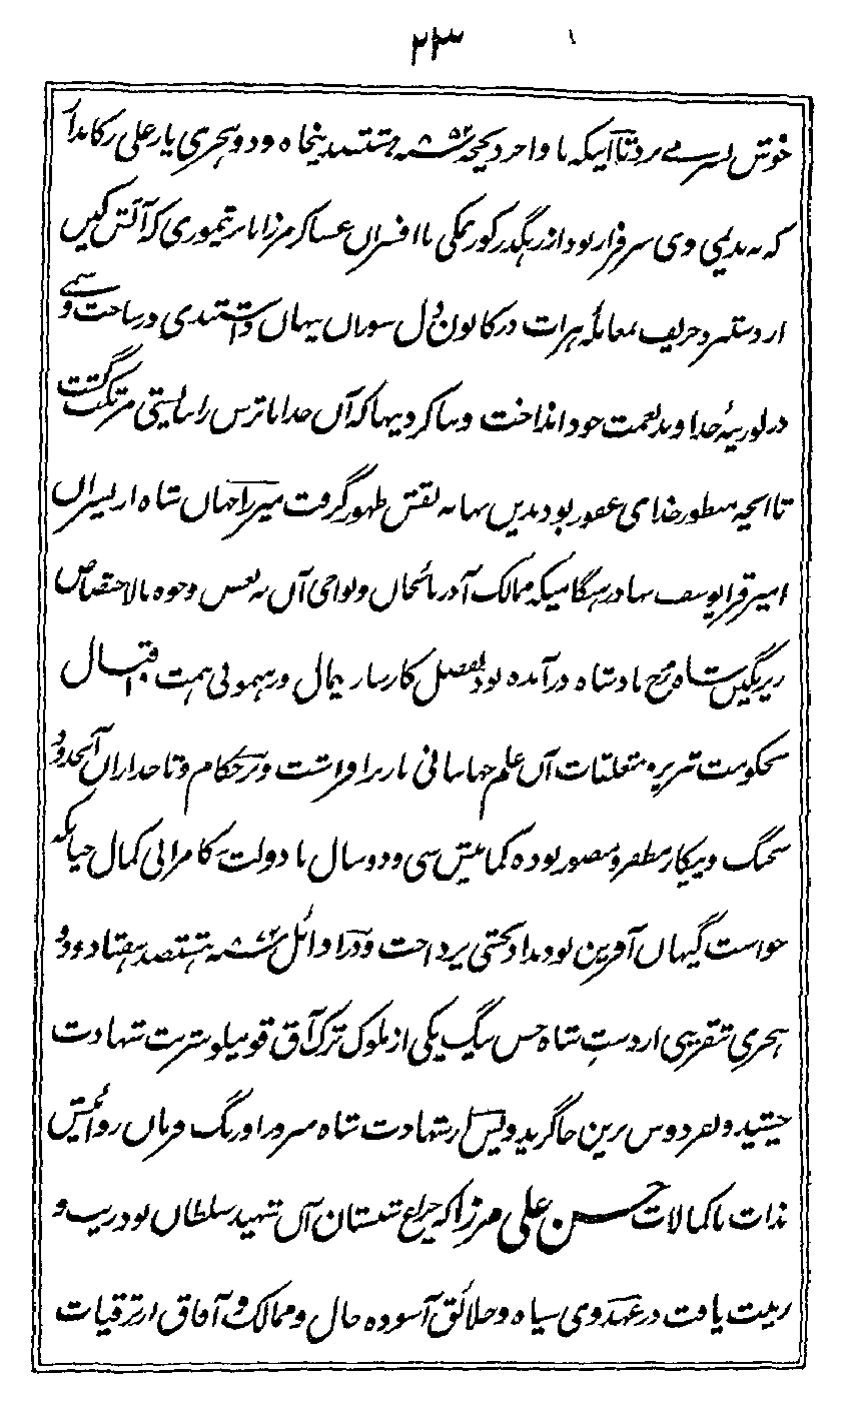 ۲۲۳
خوش بسر می برد تا آنیکه باواخر ذیحجه ۸۵۲ سنه هشتصد پنجاه ودو هجری یار علی رکابدار
که به ندیمی وی سرفراز بود از رهگذر کورنمکی با افسران عساکر مرزا بابر تیموری که آتش کین
از دستبرد حریف معاملۀ هرات در کانون دل سوزان پنهان داشتند ی درساخت و سے
در لوریۀ خداوند نعمت خود انداخت و بنا کردیها که آن خدا ناترس را بایستی مرتکب گشت
تا انچه منظور خدای غفور بود بدین بهانه نقش ظهور گرفت میرزا جهان شاه از پسران
امیر قرا یوسف بهادر هنگامیکه ممالک آذربائجان و نواحی آن به نفس وجوه بالاختصاص
زیر نگین شاه رخ بادشاه درآمده بود بفضل کارساز بیمال و رهمونی همت اقبال
بحکومت تبریز و متعلقات آن علم جهانبانی باز برافراشت و بر حکام و تاجداران آنحدود
بجنگ و پیکار مظفر و منصور بوده کمابیش سی و دو سال با دولت کامرانی کمال چنانکه
خواست گیهان آفرین بود بداد بختی پرداخت و در اوائل ۸۷۲ سنه هشتصد هفتاد و دو
هجری تقریبی از دست شاه حسن بیگ یکی از ملوک ترک آق قوینلو شربت شهادت
چشید و بفردوس برین جا گزید و پس از شهادت شاه مبرور اورنگ فرمان روائیش
بذات با کمالات حسن علی مرزا که چراغ شبستان آن شهید سلطان بود زیب و
زینت یافت در عهد وی سپاه و خلائق آسوده حال و ممالک و آفاق از ترقیات